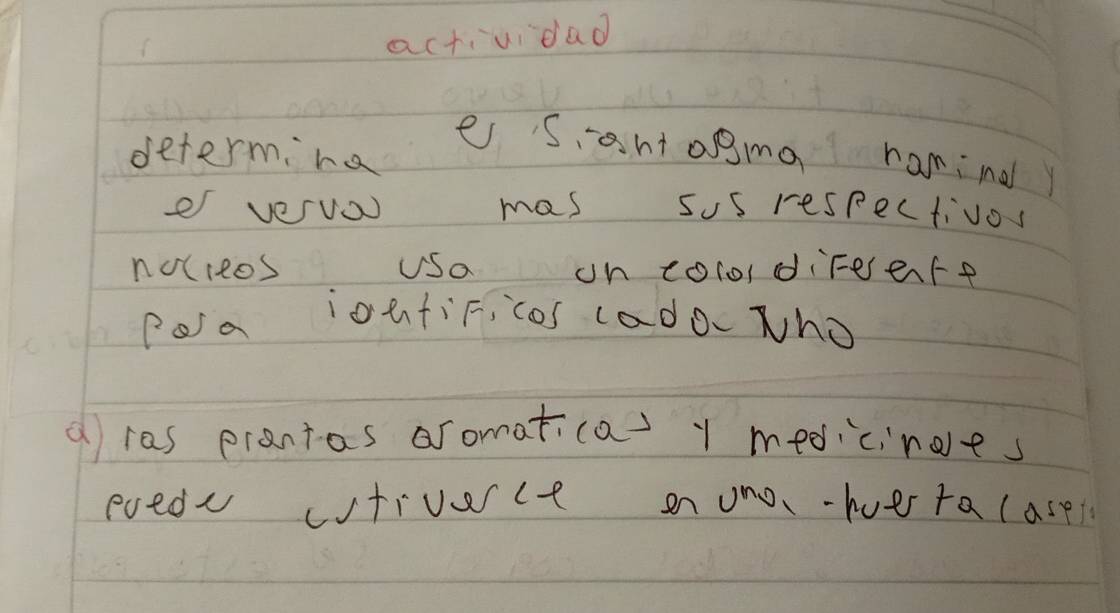 actividad
determina el Siantagma naminal y
el verval mas sus respectivos
nucleos usa un color diferente
para identificar cada uno
a) las plantas aromaticas y medicinales
puede cultiverce en una huerta